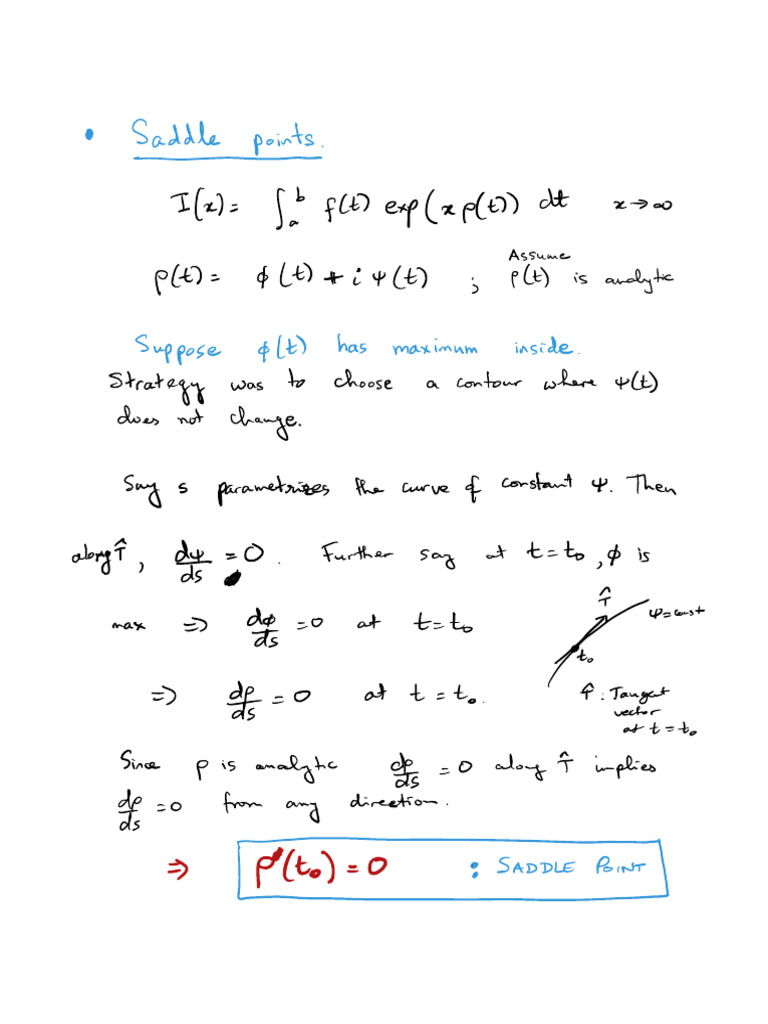 • Saddle points.
I(x) = ∫_a^b f(t) exp(x ρ(t)) dt x → ∞
Assume
ρ(t) = ϕ(t) + i ψ(t) ; ρ(t) is analytic
Suppose ϕ(t) has maximum inside.
Strategy was to choose a contour where ψ(t)
does not change.
Say s parametrizes the curve of constant ψ. Then
along T̂, dψ/ds = 0. Further say at t = t₀, ϕ is
max ⇒ dϕ/ds = 0 at t = t₀
T̂
ψ = const
t₀
⇒ dρ/ds = 0 at t = t₀.
T̂ : Tangent
vector
at t = t₀
Since ρ is analytic dρ/ds = 0 along T̂ implies
dρ/ds = 0 from any direction.
⇒ ρ'(t₀) = 0 : SADDLE POINT